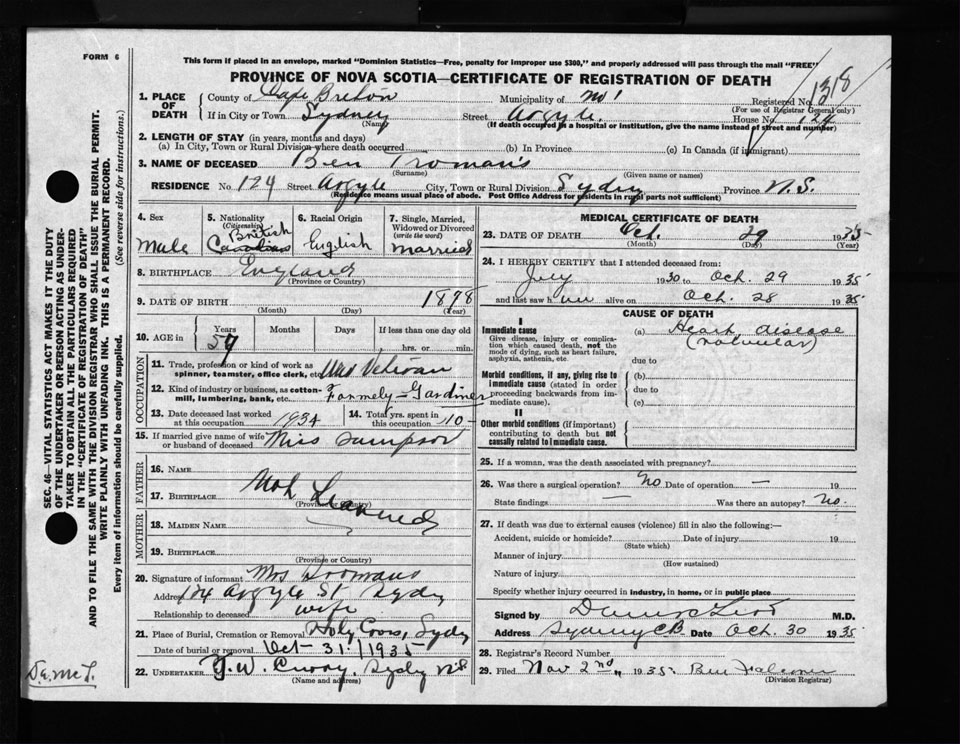 FORM 6
This form if placed in an envelope, marked "Dominion Statistics—Free, penalty for improper use $300," and properly addressed will pass through the mail "FREE"
PROVINCE OF NOVA SCOTIA—CERTIFICATE OF REGISTRATION OF DEATH
1318
1. PLACE OF DEATH
County of Cape Breton Municipality of No 1 Registered No.
(For use of Registrar General only)
If in City or Town Sydney Street Argyle. House No. 124
(Name) (If death occurred in a hospital or institution, give the name instead of street and number)
2. LENGTH OF STAY (in years, months and days)
(a) In City, Town or Rural Division where death occurred (b) In Province (c) In Canada (if immigrant)
3. NAME OF DECEASED Ben Tromans
(Surname) (Given name or names)
RESIDENCE No. 124 Street Argyle City, Town or Rural Division Sydney Province N.S.
(Residence means usual place of abode. Post Office Address for residents in rural parts not sufficient)
4. Sex
Male
5. Nationality
(Citizenship)
British
Canadian
6. Racial Origin
English
7. Single, Married, Widowed or Divorced
(write the word)
Married
8. BIRTHPLACE England
(Province or Country)
9. DATE OF BIRTH 1878
(Month) (Day) (Year)
10. AGE in Years Months Days If less than one day old
57 hrs. or min.
OCCUPATION
11. Trade, profession or kind of work as spinner, teamster, office clerk, etc. War Veteran
12. Kind of industry or business, as cotton-mill, lumbering, bank, etc. Formely—Gardiner
13. Date deceased last worked at this occupation 1934
14. Total yrs. spent in this occupation 10
15. If married give name of wife or husband of deceased Miss Sampson
FATHER
16. NAME
17. BIRTHPLACE
(Province or Country)
Not Learned
MOTHER
18. MAIDEN NAME
19. BIRTHPLACE
(Province or Country)
20. Signature of informant Mrs Tromans
Address 124 Argyle St Sydney
Relationship to deceased wife
21. Place of Burial, Cremation or Removal Holy Cross, Sydney
Date of burial or removal Oct 31, 1935
22. UNDERTAKER Curry, Sydney NS
(Name and address)
MEDICAL CERTIFICATE OF DEATH
23. DATE OF DEATH Oct. 29 1935
(Month) (Day) (Year)
24. I HEREBY CERTIFY that I attended deceased from:
July 1930 to Oct. 29 1935
and last saw him alive on Oct. 28 1935
CAUSE OF DEATH
I
Immediate cause
Give disease, injury or complication which caused death, not the mode of dying, such as heart failure, asphyxia, asthenia, etc.
(a) Heart disease
(valvular)
due to
Morbid conditions, if any, giving rise to immediate cause (stated in order proceeding backwards from immediate cause).
(b)
due to
(c)
II
Other morbid conditions (if important) contributing to death but not causally related to immediate cause.
25. If a woman, was the death associated with pregnancy?
26. Was there a surgical operation? No Date of operation — 19
State findings — Was there an autopsy? No.
27. If death was due to external causes (violence) fill in also the following:—
Accident, suicide or homicide? Date of injury 19
(State which)
Manner of injury
(How sustained)
Nature of injury
Specify whether injury occurred in industry, in home, or in public place
Signed by M.D.
Address Sydney CB Date Oct. 30 1935
28. Registrar's Record Number
29. Filed Nov 2nd 1935. Ben
(Division Registrar)
SEC. 46—VITAL STATISTICS ACT MAKES IT THE DUTY
OF THE UNDERTAKER OR PERSON ACTING AS UNDER-
TAKER TO OBTAIN ALL THE PARTICULARS REQUIRED
IN THE "CERTIFICATE OF REGISTRATION OF DEATH"
AND TO FILE THE SAME WITH THE DIVISION REGISTRAR WHO SHALL ISSUE THE BURIAL PERMIT.
WRITE PLAINLY WITH UNFADING INK. THIS IS A PERMANENT RECORD.
Every item of information should be carefully supplied. (See reverse side for instructions.)